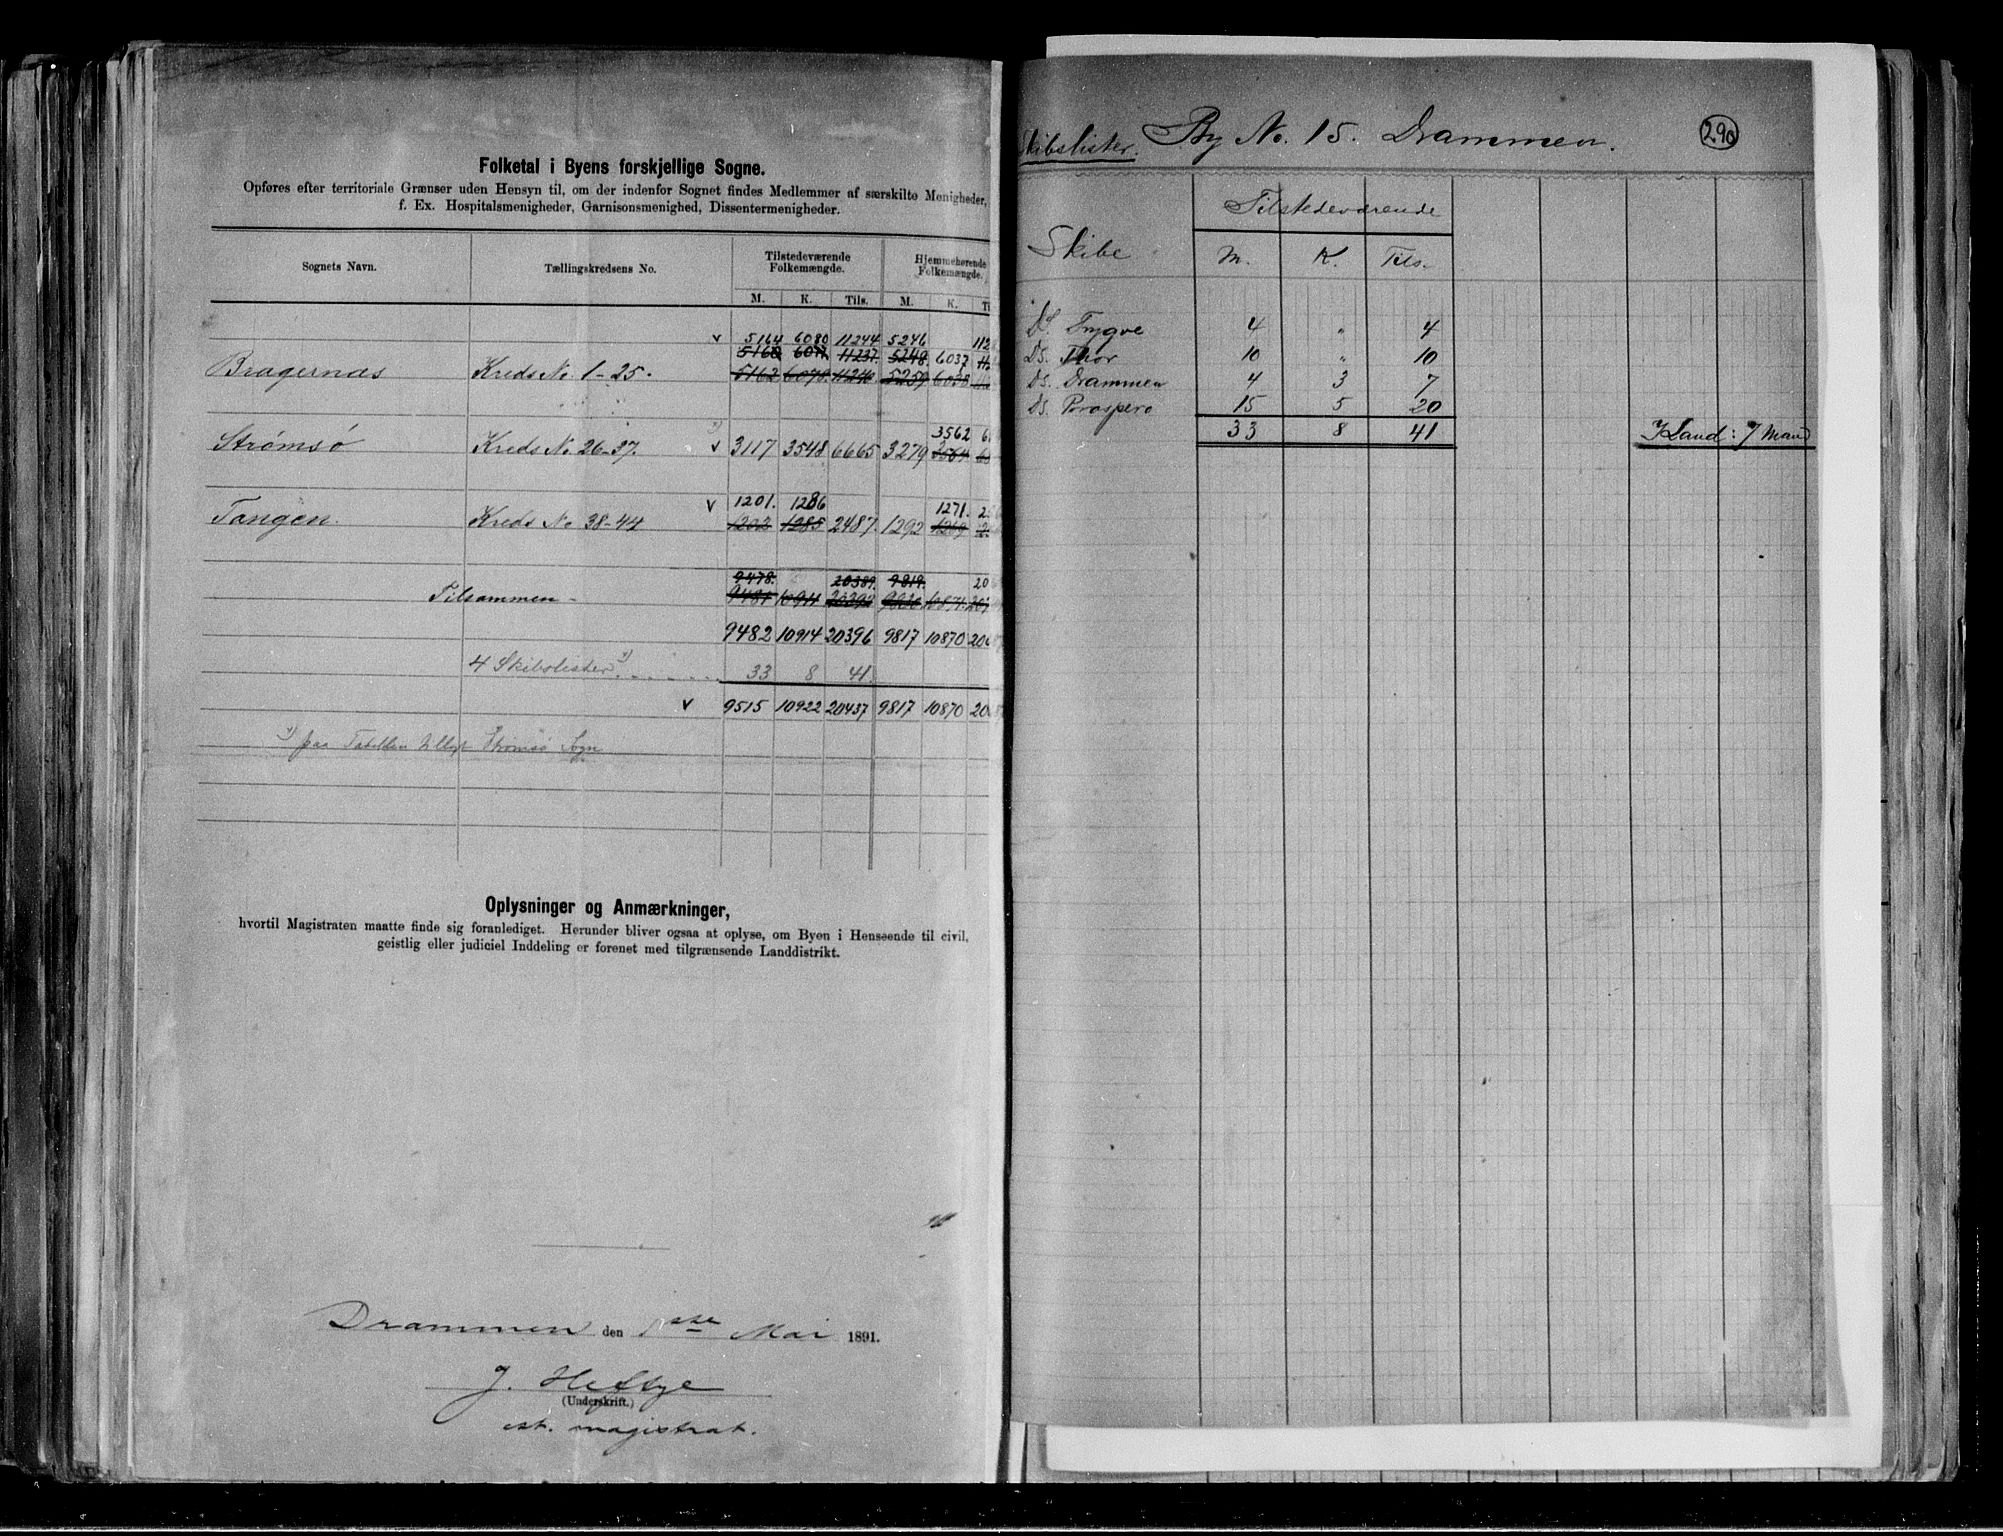 Folketal i Byens forskjellige Sogne.
Opføres efter territoriale Grænser uden Hensyn til, om der indenfor Sognet findes Medlemmer af særskilte Menigheder,
f. Ex. Hospitalsmenigheder, Garnisonsmenighed, Dissentermenigheder.
Sognets Navn. Tællingskredsens No. Tilstedeværende Folkemængde. Hjemmehørende Folkemængde.
M. K. Tils. M. K.
v 5164 6080 11244 5246
5248. 6037
11237.
Bragernæs Kreds No. 1-25. 5162 6078. 11240 5259 6038
3562
Strømsø Kreds No 26-37. v 3117 3548 6665 3279 3564
v 1201. 1286 1271.
Tangen. Kreds No 38-44 1202 1285 2487. 1292 1269
9478. 20389. 9819.
Tilsammen - 9481 10911 20392 9830 10871.
9482 10914 20396 9817 10870
4 Skibslister 33 8 41.
v 9515 10922 20437 9817 10870
paa Tabellen tillagt Strømsø Sogn
Oplysninger og Anmærkninger,
hvortil Magistraten maatte finde sig foranlediget. Herunder bliver ogsaa at oplyse, om Byen i Henseende til civil,
geistlig eller judiciel Inddeling er forenet med tilgrænsende Landdistrikt.
Drammen den 1ste Mai 1891.
J. Heftye
(Underskrift.)
cst. magistrat.
Skibslister. By No. 15. Drammen. 290
Tilstedeværende
Skibe M. K. Tils.
DS. Trygve 4 " 4
DS. Thor 10 " 10
DS. Drammen 4 3 7
DS. Prospero 15 5 20
33 8 41 I Land: 7 Mand